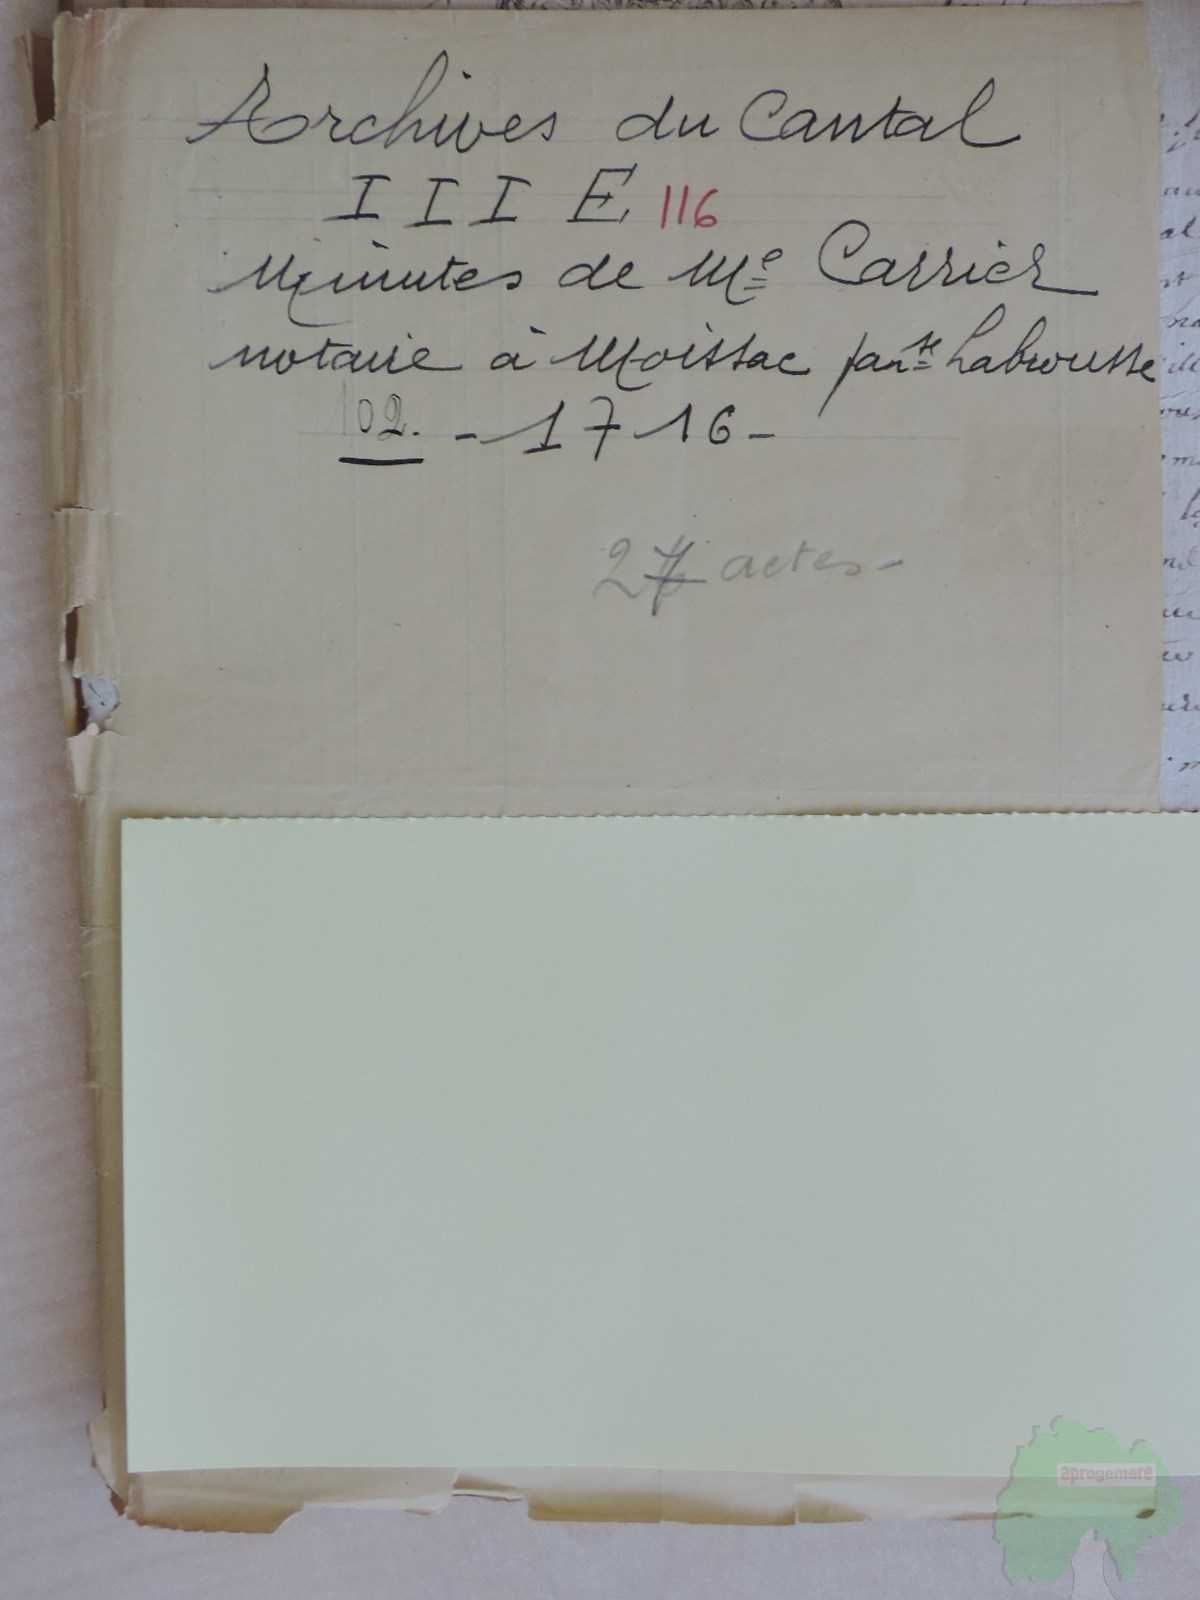 Archives du Cantal
III E 116
Minutes de Me Carrier
notaire à Moissac parsse Labrousse
102. - 1716 -
actes -
2progemere